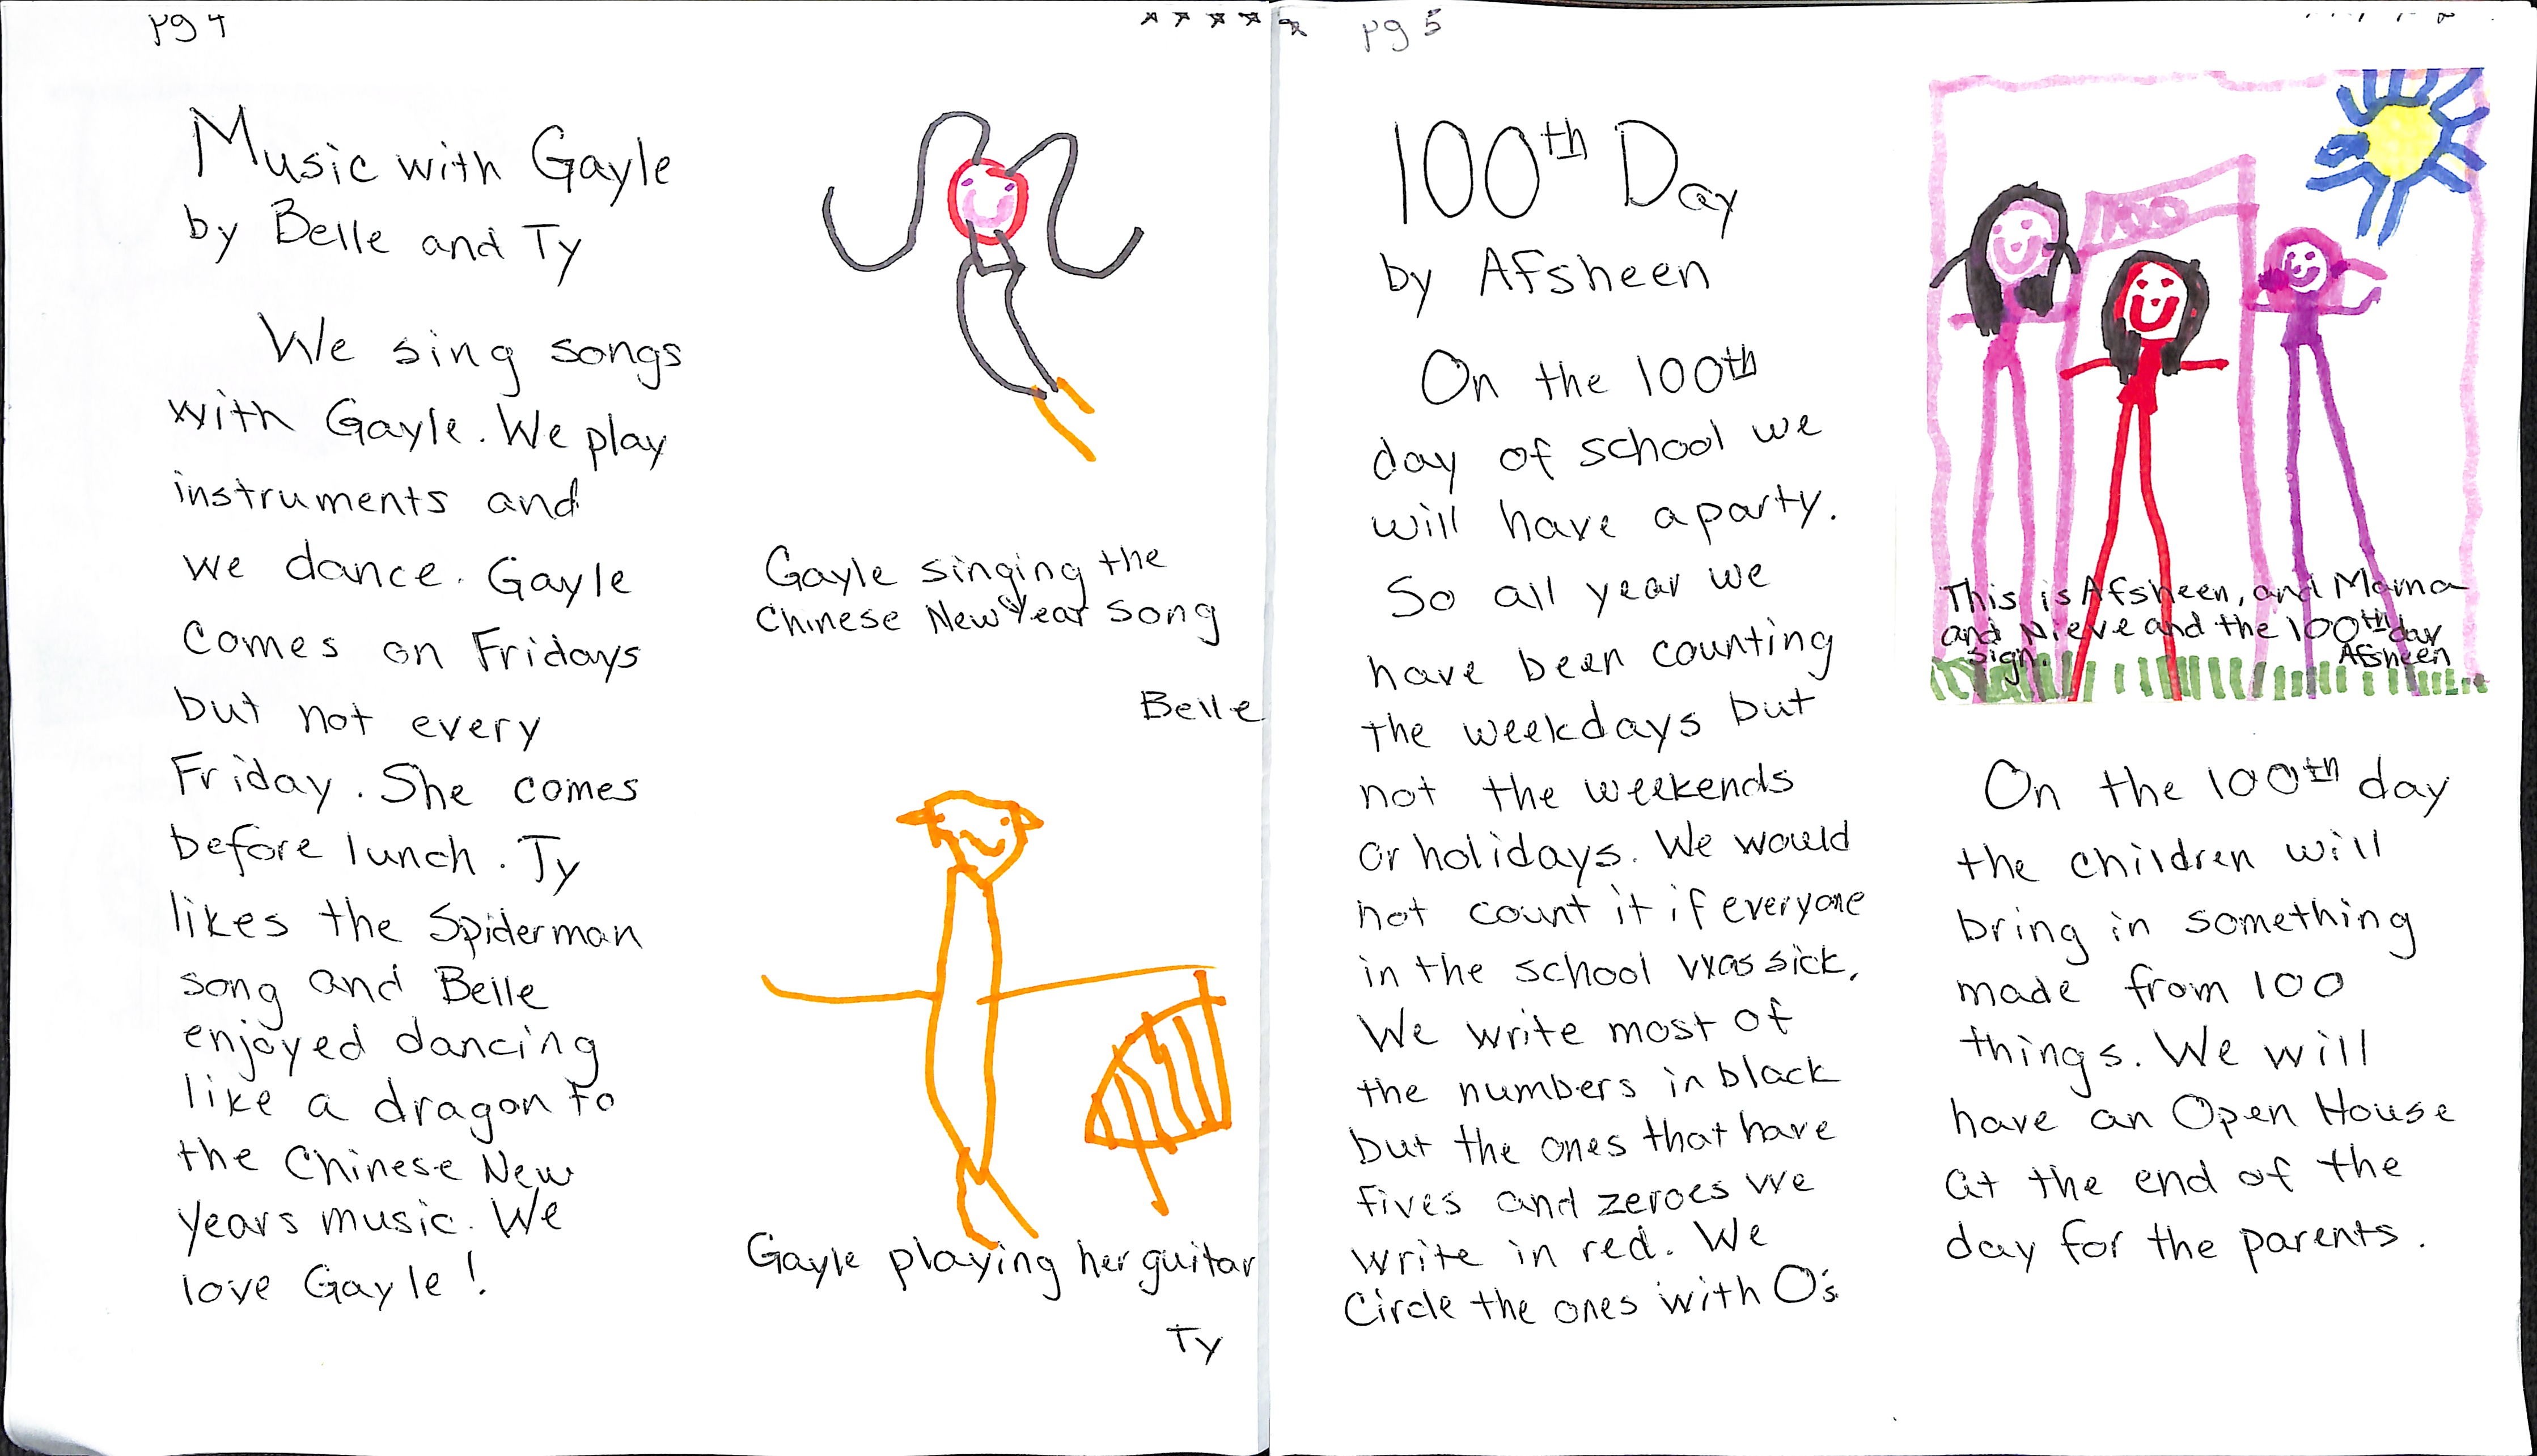 pg 4
Music with Gayle
by Belle and Ty
We sing songs
with Gayle. We play
instruments and
we dance. Gayle
comes on Fridays
but not every
Friday. She comes
before lunch. Ty
likes the Spiderman
song and Belle
enjoyed dancing
like a dragon to
the Chinese New
Years music. We
love Gayle!
Gayle singing the
Chinese New Year song
Belle
Gayle playing her guitar
Ty
pg 5
100th Day
by Afsheen
On the 100th
day of school we
will have a party.
So all year we
have been counting
the weekdays but
not the weekends
or holidays. We would
not count it if everyone
in the school was sick.
We write most of
the numbers in black
but the ones that have
fives and zeroes we
write in red. We
Circle the ones with O's
100
This is Afsheen, and Mama
and Nieve and the 100th day
sign.
Afsheen
On the 100th day
the children will
bring in something
made from 100
things. We will
have an Open House
at the end of the
day for the parents.